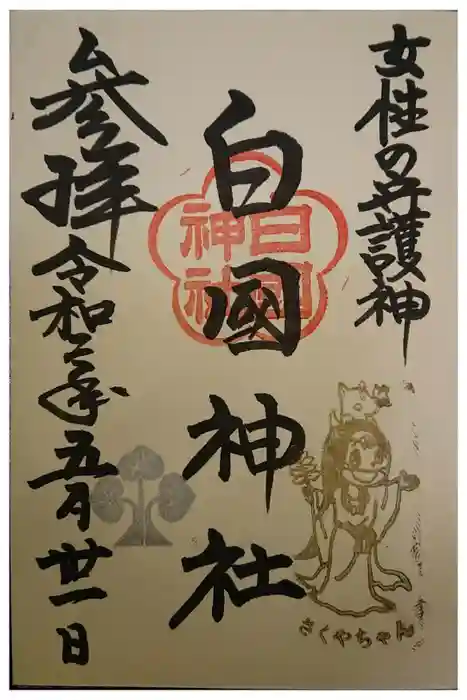 女性の守護神
白國神社
白國
神社
さくやちゃん
参拝 令和三年五月廿一日